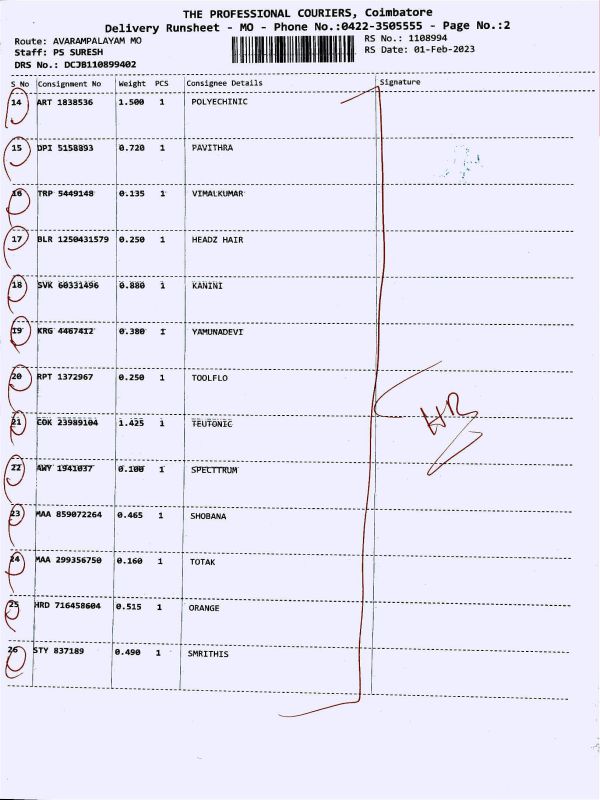 THE PROFESSIONAL COURIERS, Coimbatore
Delivery Runsheet - MO - Phone No.:0422-3505555 - Page No.:2
Route: AVARAMPALAYAM MO RS No.: 1108994
Staff: PS SURESH RS Date: 01-Feb-2023
DRS No.: DCJB110899402
S No Consignment No Weight PCS Consignee Details Signature
14 ART 1838536 1.500 1 POLYECHINIC
15 DPI 5158893 0.720 1 PAVITHRA
16 TRP 5449148 0.135 1 VIMALKUMAR
17 BLR 1250431579 0.250 1 HEADZ HAIR
18 SVK 60331496 0.880 1 KANINI
19 KRG 4467412 0.380 1 YAMUNADEVI
20 RPT 1372967 0.250 1 TOOLFLO
21 COK 23989104 1.425 1 TEUTONIC
22 AWY 1941037 0.100 1 SPECTTRUM
23 MAA 859072264 0.465 1 SHOBANA
24 MAA 299356750 0.160 1 TOTAK
25 HRD 716458604 0.515 1 ORANGE
26 STY 837189 0.490 1 SMRITHIS